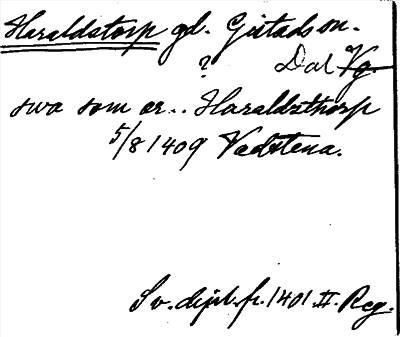 Haraldstorp gd. Gistadsson.
? Dal Vg.
swa som ær.. Haraldzthorp
5/8 1409 Vadstena.
Sv. dipl. fr. 1401 II. Reg.